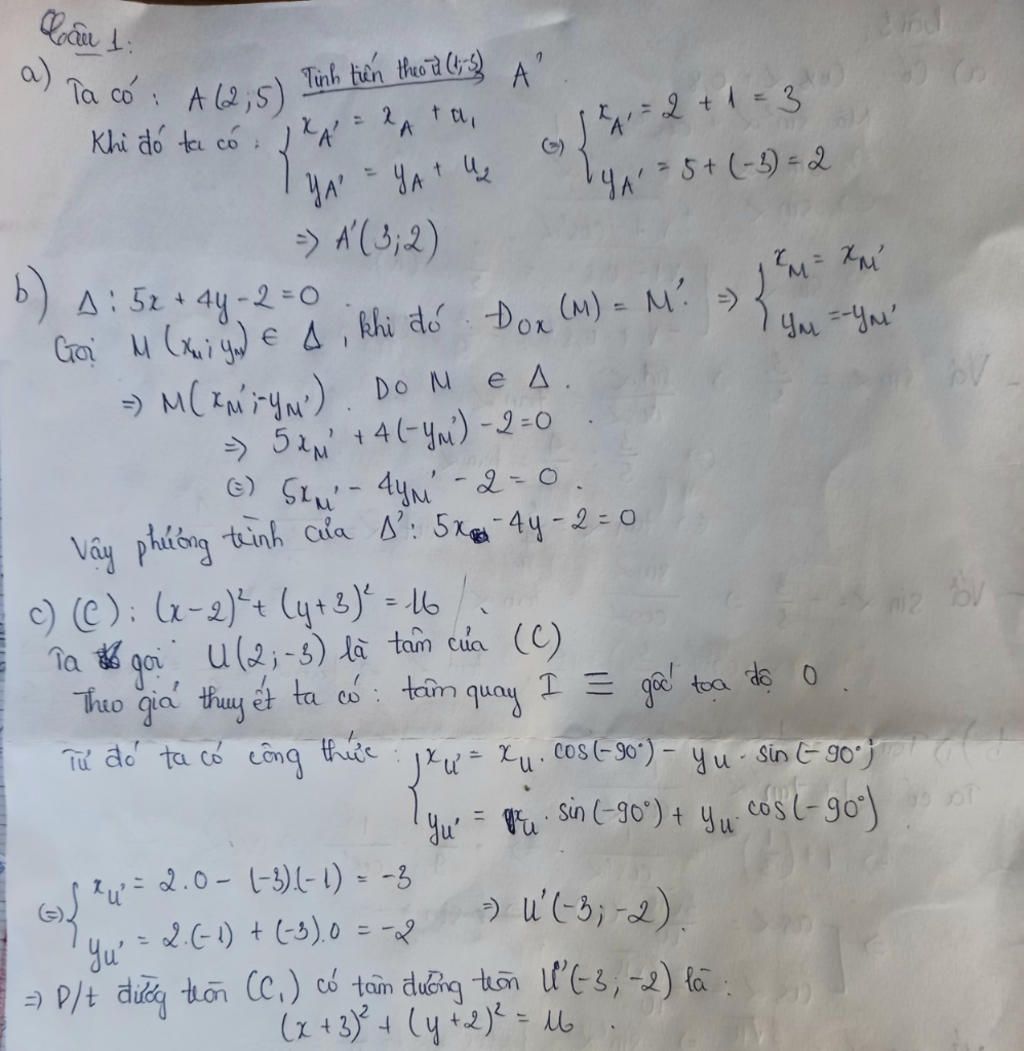 Câu 1:
a) Ta có : A(2;5) Tịnh tiến theo u(1;-3) A'
Khi đó ta có : { x_A' = x_A + u_1 (=) { x_A' = 2 + 1 = 3
y_A' = y_A + u_2 y_A' = 5 + (-3) = 2
=> A'(3;2)
b) Δ : 5x + 4y - 2 = 0
Gọi M (x_M; y_M) ∈ Δ , khi đó : Đ_Ox (M) = M' => { x_M = x_M'
y_M = -y_M'
=> M(x_M'; -y_M') . Do M ∈ Δ .
=> 5x_M' + 4(-y_M') - 2 = 0 .
(=) 5x_M' - 4y_M' - 2 = 0 .
Vậy phương trình của Δ' : 5x - 4y - 2 = 0
c) (C) : (x-2)² + (y+3)² = 16
Ta gọi U(2;-3) là tâm của (C)
Theo giả thuyết ta có : tâm quay I ≡ gốc tọa độ O .
Từ đó ta có công thức : { x_U' = x_U . cos(-90°) - y_U . sin(-90°)
y_U' = x_U . sin(-90°) + y_U . cos(-90°)
(=) { x_U' = 2.0 - (-3).(-1) = -3
y_U' = 2.(-1) + (-3).0 = -2 => U'(-3; -2) .
=> P/t đường tròn (C_1) có tâm đường tròn U'(-3; -2) là :
(x+3)² + (y+2)² = 16 .